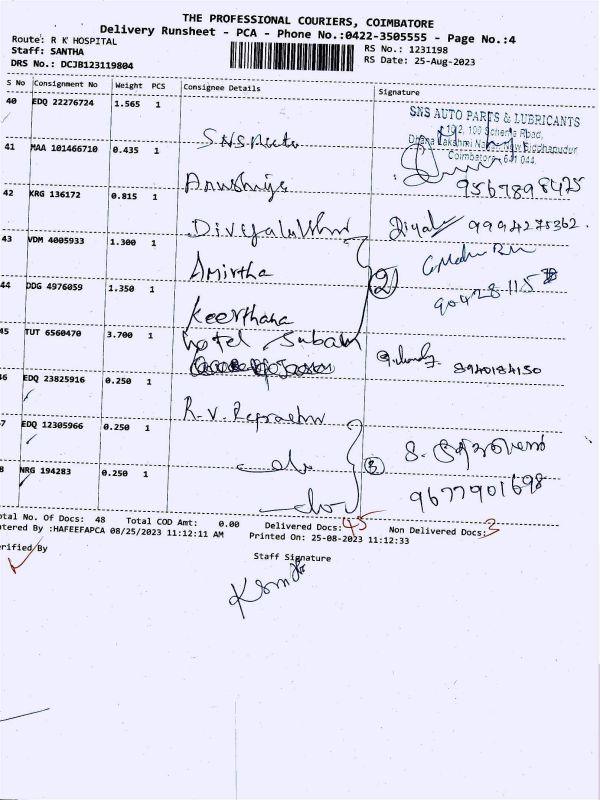 THE PROFESSIONAL COURIERS, COIMBATORE
Delivery Runsheet - PCA - Phone No.:0422-3505555 - Page No.:4
Route: R K HOSPITAL
Staff: SANTHA
DRS No.: DCJB123119804
RS No.: 1231198
RS Date: 25-Aug-2023
S No Consignment No Weight PCS Consignee Details Signature
40 EDQ 22276724 1.565 1
SNS Auto
SNS AUTO PARTS & LUBRICANTS
10/2, 100 Scheme Road,
Dhana Lakshmi Nagar, New Siddhapudur
Coimbatore - 641 044.
41 MAA 101466710 0.435 1
9567898425
42 KRG 136172 0.815 1
Divyalakshmi
Divyal 9994275362.
43 VDM 4005933 1.300 1
Amirtha
2
44 DDG 4976059 1.350 1
Keerthana
90428 115
45 TUT 6560470 3.700 1
hotel Subam
8940184150
46 EDQ 23825916 0.250 1
R.V.
47 EDQ 12305966 0.250 1
do
3
48 NRG 194283 0.250 1
do
9677901698
Total No. Of Docs: 48 Total COD Amt: 0.00 Delivered Docs: 45 Non Delivered Docs: 3
Entered By :HAFEEFAPCA 08/25/2023 11:12:11 AM Printed On: 25-08-2023 11:12:33
Verified By
Staff Signature